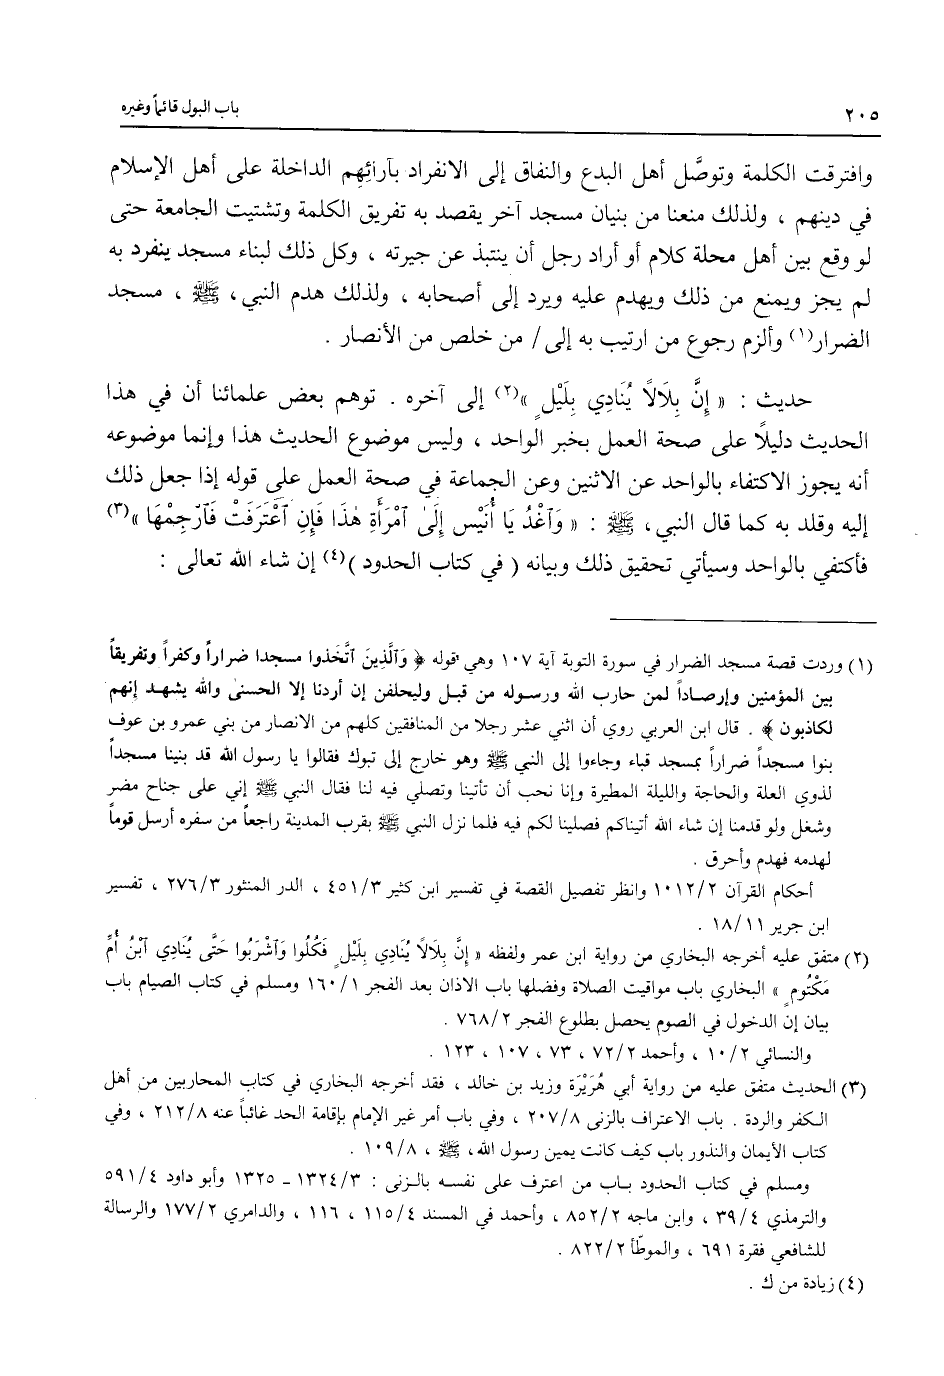 باب البول قائماً وغيره
٢٠٥
وافترقت الكلمة وتوصَّل أهل البدع والنفاق إلى الانفراد بآرائِهم الداخلة على أهل الإسلام
في دينهم ، ولذلك منعنا من بنيان مسجد آخر يقصد به تفريق الكلمة وتشتيت الجامعة حتى
لو وقع بين أهل محلة كلام أو أراد رجل أن ينتبذ عن جيرته ، وكل ذلك لبناء مسجد ينفرد به
لم يجز ويمنع من ذلك ويهدم عليه ويرد إلى أصحابه ، ولذلك هدم النبي، ﷺ ، مسجد
الضرار(١) وألزم رجوع من ارتيب به إلى/ من خلص من الأنصار .
حديث : « إِنَّ بِلَالًا يُنَادِي بِلَيْلٍ »(٢) إلى آخره . توهم بعض علمائنا أن في هذا
الحديث دليلًا على صحة العمل بخبر الواحد ، وليس موضوع الحديث هذا وإنما موضوعه
أنه يجوز الاكتفاء بالواحد عن الاثنين وعن الجماعة في صحة العمل على قوله إذا جعل ذلك
إليه وقلد به كما قال النبي، ﷺ : « وَٱغْدُ يَا أُنَيْس إِلَىٰ ٱمْرَأَةِ هٰذَا فَإِنِ ٱعْتَرَفَتْ فَٱرْجِمْهَا »(٣)
فأكتفي بالواحد وسيأتي تحقيق ذلك وبيانه ( في كتاب الحدود )(٤) إن شاء الله تعالى :
(١) وردت قصة مسجد الضرار في سورة التوبة آية ١٠٧ وهي قوله ﴿ وَٱلَّذِينَ ٱتَّخَذُوا مسجدا ضراراً وكفراً وتفريقاً
بين المؤمنين وإرصاداً لمن حارب الله ورسوله من قبل وليحلفن إن أردنا إلا الحسنىٰ والله يشهد إنهم
لكاذبون ﴾ . قال ابن العربي روي أن اثني عشر رجلا من المنافقين كلهم من الانصار من بني عمرو بن عوف
بنوا مسجداً ضراراً بمسجد قباء وجاءوا إلى النبي ﷺ وهو خارج إلى تبوك فقالوا يا رسول الله قد بنينا مسجداً
لذوي العلة والحاجة والليلة المطيرة وإنا نحب أن تأتينا وتصلي فيه لنا فقال النبي ﷺ إني على جناح مضر
وشغل ولو قدمنا إن شاء الله أتيناكم فصلينا لكم فيه فلما نزل النبي ﷺ بقرب المدينة راجعاً من سفره أرسل قوماً
لهدمه فهدم وأحرق .
أحكام القرآن ١٠١٢/٢ وانظر تفصيل القصة في تفسير ابن كثير ٤٥١/٣ ، الدر المنثور ٢٧٦/٣ ، تفسير
ابن جرير ١٨/١١ .
(٢) متفق عليه أخرجه البخاري من رواية ابن عمر ولفظه « إِنَّ بِلَالًا يُنَادِي بِلَيْلٍ فَكُلُوا وَٱشْرَبُوا حَتَّى يُنَادِي ٱبْنُ أُمِّ
مَكْتُومٍ » البخاري باب مواقيت الصلاة وفضلها باب الاذان بعد الفجر ١٦٠/١ ومسلم في كتاب الصيام باب
بيان إن الدخول في الصوم يحصل بطلوع الفجر ٧٦٨/٢ .
والنسائي ١٠/٢ ، وأحمد ٧٢/٢ ، ٧٣ ، ١٠٧ ، ١٢٣ .
(٣) الحديث متفق عليه من رواية أبي هُرَيْرَة وزيد بن خالد ، فقد أخرجه البخاري في كتاب المحاربين من أهل
الكفر والردة . باب الاعتراف بالزنى ٢٠٧/٨ ، وفي باب أمر غير الإمام بإقامة الحد غائباً عنه ٢١٢/٨ ، وفي
كتاب الأيمان والنذور باب كيف كانت يمين رسول الله، ﷺ ، ١٠٩/٨ .
ومسلم في كتاب الحدود باب من اعترف على نفسه بالزنى : ١٣٢٤/٣ ـ ١٣٢٥ وأبو داود ٥٩١/٤
والترمذي ٣٩/٤ ، وابن ماجه ٨٥٢/٢ ، وأحمد في المسند ١١٥/٤ ، ١١٦ ، والدامري ١٧٧/٢ والرسالة
للشافعي فقرة ٦٩١ ، والموطّأ ٨٢٢/٢ .
(٤) زيادة من ك .